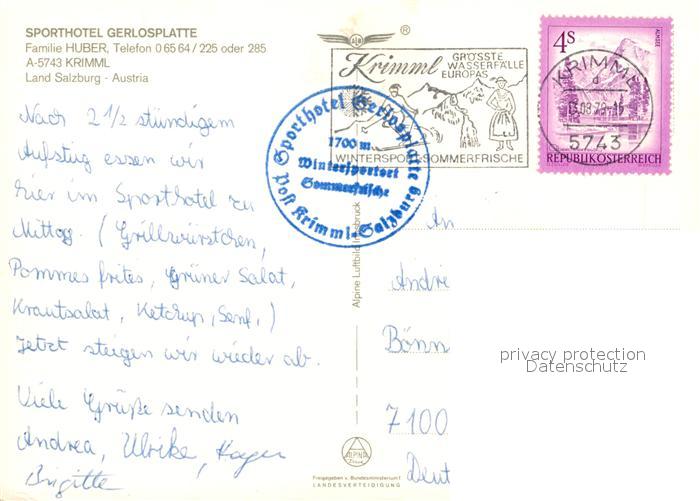 SPORTHOTEL GERLOSPLATTE
Familie HUBER, Telefon 0 65 64 / 225 oder 285
A-5743 KRIMML
Land Salzburg - Austria
Nach 2 1/2 stündigem
Aufstieg essen wir
hier im Sporthotel zu
Mittag. (Grillwürstchen,
Pommes frites, Grüner Salat,
Krautsalat, Ketchup, Senf.)
Jetzt steigen wir wieder ab.
Viele Grüße senden
Andrea, Ulrike,
Brigitte
®
Krimml GRÖSSTE
WASSERFÄLLE
EUROPAS
WINTERSPORT-SOMMERFRISCHE
Sporthotel Gerlosplatte
1700 m
Wintersportort
Sommerfrische
Post Krimml-Salzburg
4S
ALMSEE
REPUBLIK ÖSTERREICH
KRIMML
d
5743
Alpine Luftbild Innsbruck
An
Andre
Bönn
7100
Deut
privacy protection
Datenschutz
ALPINE
Freigegeben v. Bundesministerium f.
LANDESVERTEIDIGUNG